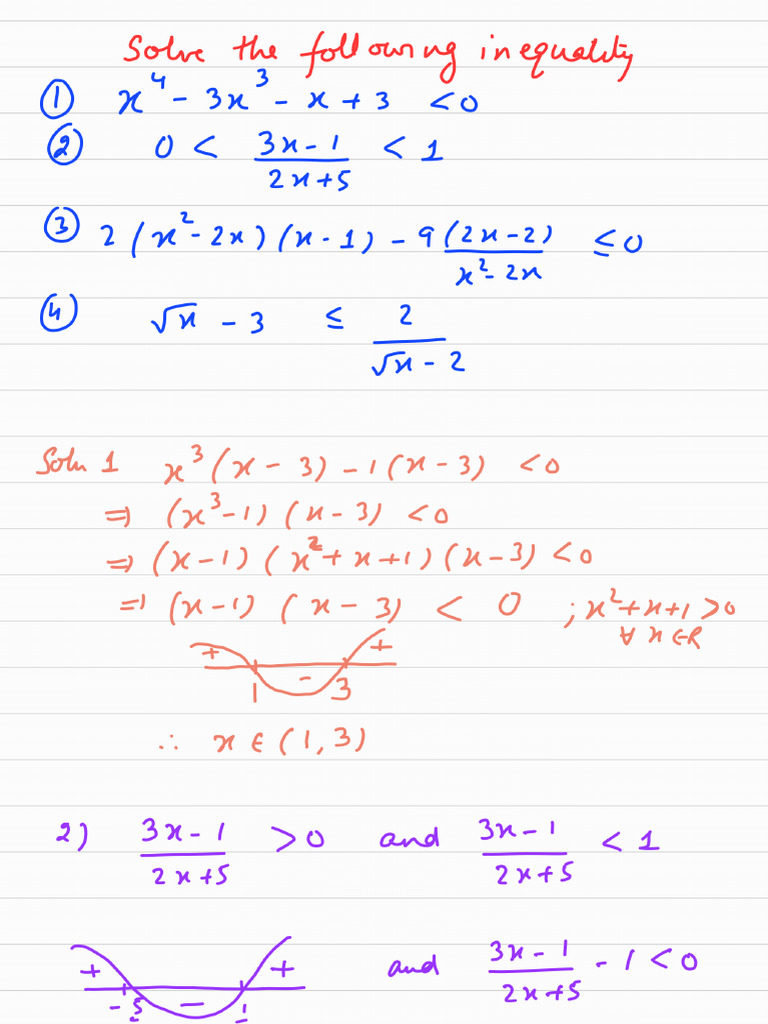 Solve the following inequality
① x⁴ - 3x³ - x + 3 < 0
② 0 < (3x-1)/(2x+5) < 1
③ 2(x²-2x)(x-1) - 9(2x-2)/(x²-2x) ≤ 0
④ √x - 3 ≤ 2/(√x - 2)
Soln 1 x³(x-3) - 1(x-3) < 0
⇒ (x³-1)(x-3) < 0
⇒ (x-1)(x²+x+1)(x-3) < 0
⇒ (x-1)(x-3) < 0 ; x²+x+1 > 0
∀ x ∈ R
+ - +
1 3
∴ x ∈ (1,3)
2) (3x-1)/(2x+5) > 0 and (3x-1)/(2x+5) < 1
+ - + and (3x-1)/(2x+5) - 1 < 0
-5 1